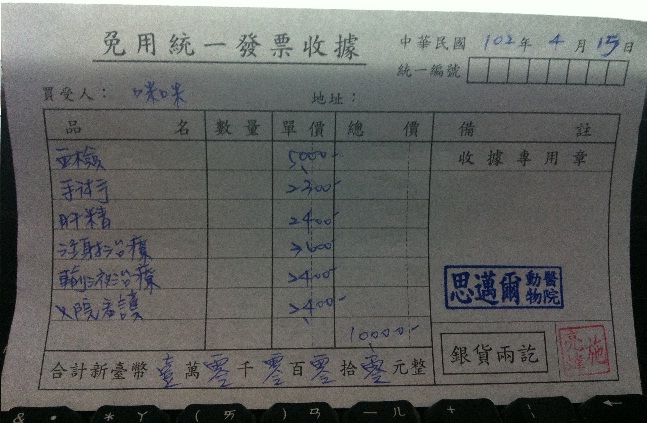 免用統一發票收據
中華民國 102 年 4 月 15 日
統一編號
買受人： 咪咪 地址：
品名 數量 單價 總價 備註
血檢 5000- 收據專用章
手術 2300-
肝精 2400-
注射治療
輸液治療 2400-
思邁爾 動物醫院
入院看護 2400-
10000-
銀貨兩訖
合計新臺幣 壹 萬 零 千 零 百 零 拾 零 元整